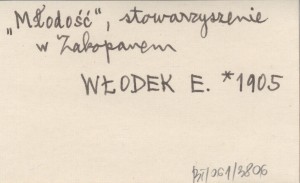 „Młodość", stowarzyszenie
w Zakopanem
WŁODEK E. *1905
/3806